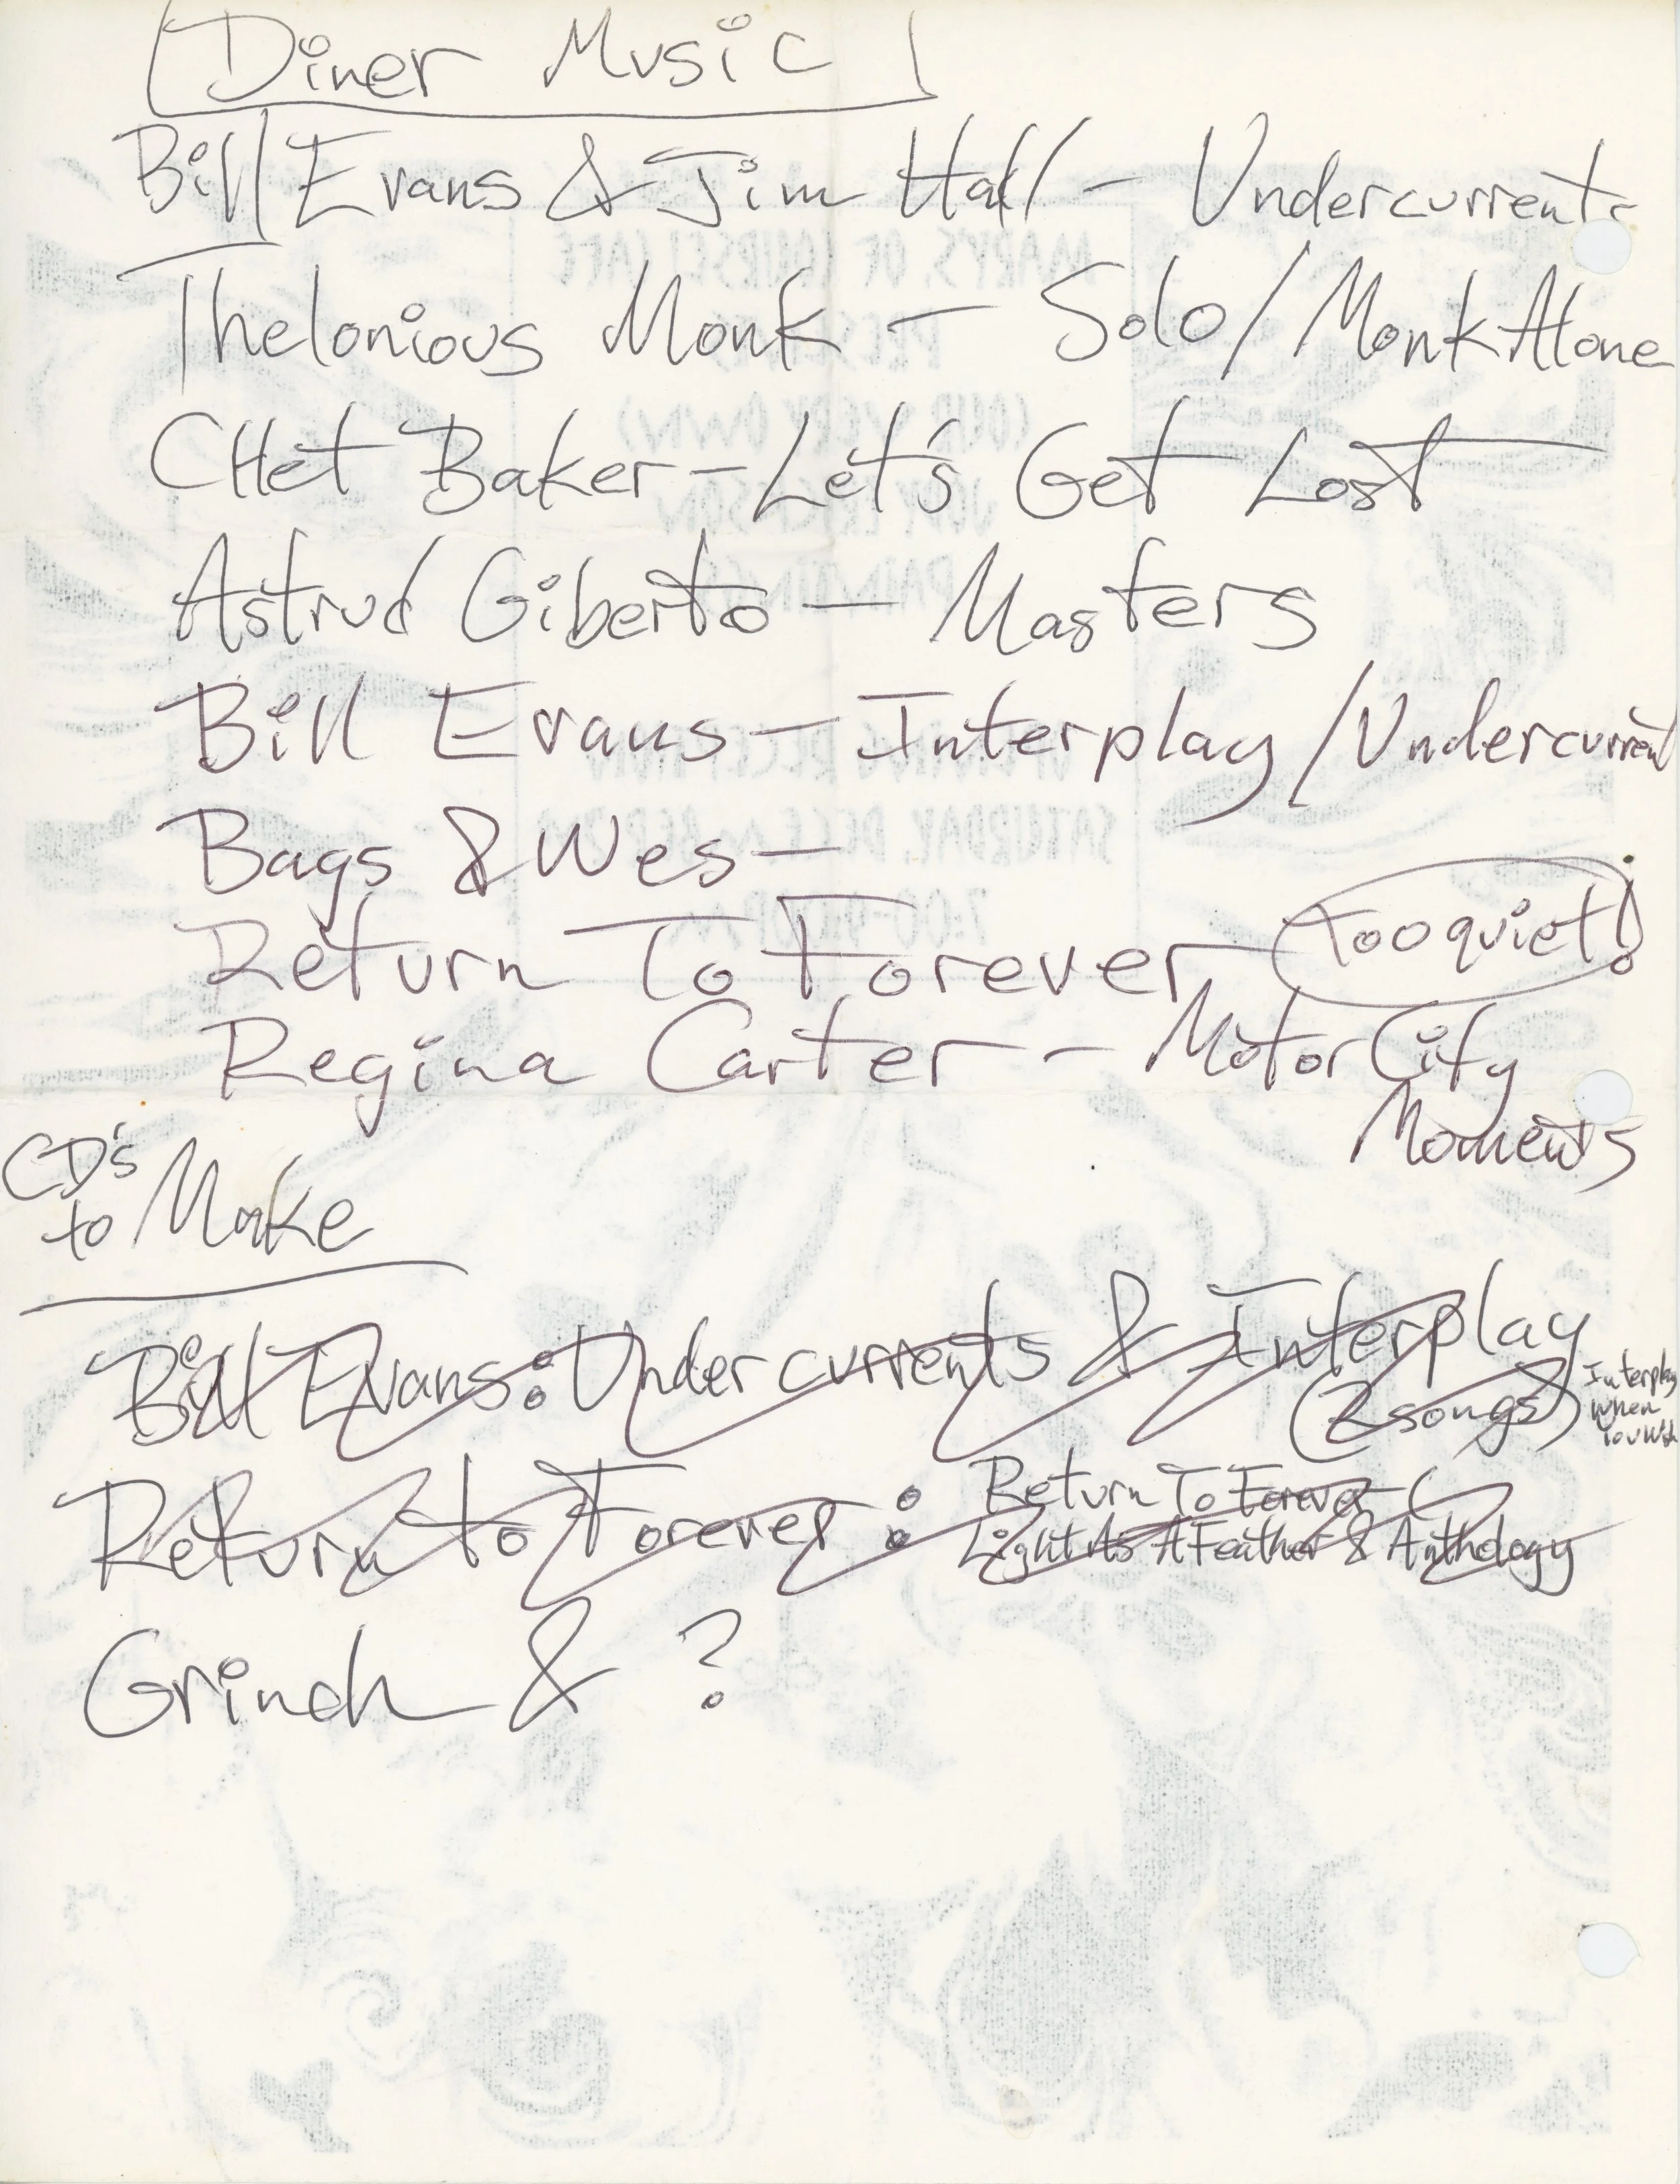 Diner Music
Bill Evans & Jim Hall - Undercurrents
Thelonious Monk - Solo/Monk Alone
CHet Baker - Let's Get Lost
Astrud Giberto - Masters
Bill Evans - Interplay/Undercurrent
Bags & Wes -
Return To Forever - too quiet!
Regina Carter - Motor City
Moments
CD's
to Make
Bill Evans: Undercurrents & Interplay
(2 songs)
Interplay
When
You Wish
Return to Forever: Return To Forever
Light As A Feather & Anthology
Grinch & ?
MARY'S OF
(OUR VERY OWN)
SATURDAY, DEC.